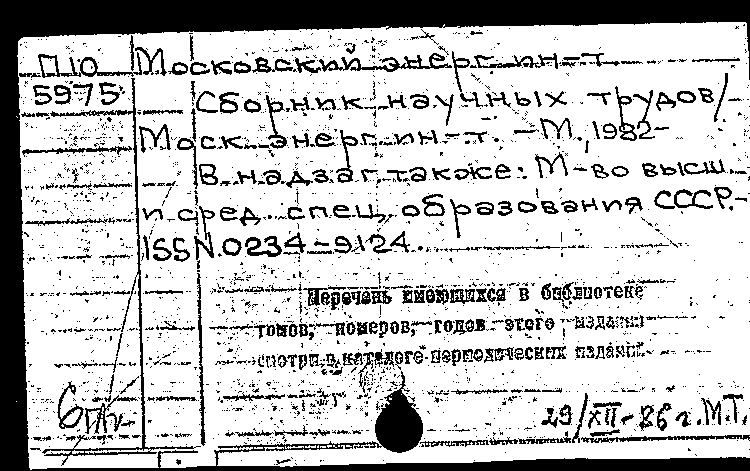 П10 Московский энерг. ин-т.
5975 Сборник научных трудов/
Моск. энерг. ин-т. - М., 1982-
В надзаг. также: М-во высш.
и сред. спец. образования СССР.-
ISSN 0234-9124.
Перечень имеющихся в библиотеке
томов, номеров, годов этого издания
смотри в каталоге периодических изданий.
29/XII-86 г. М.Т.